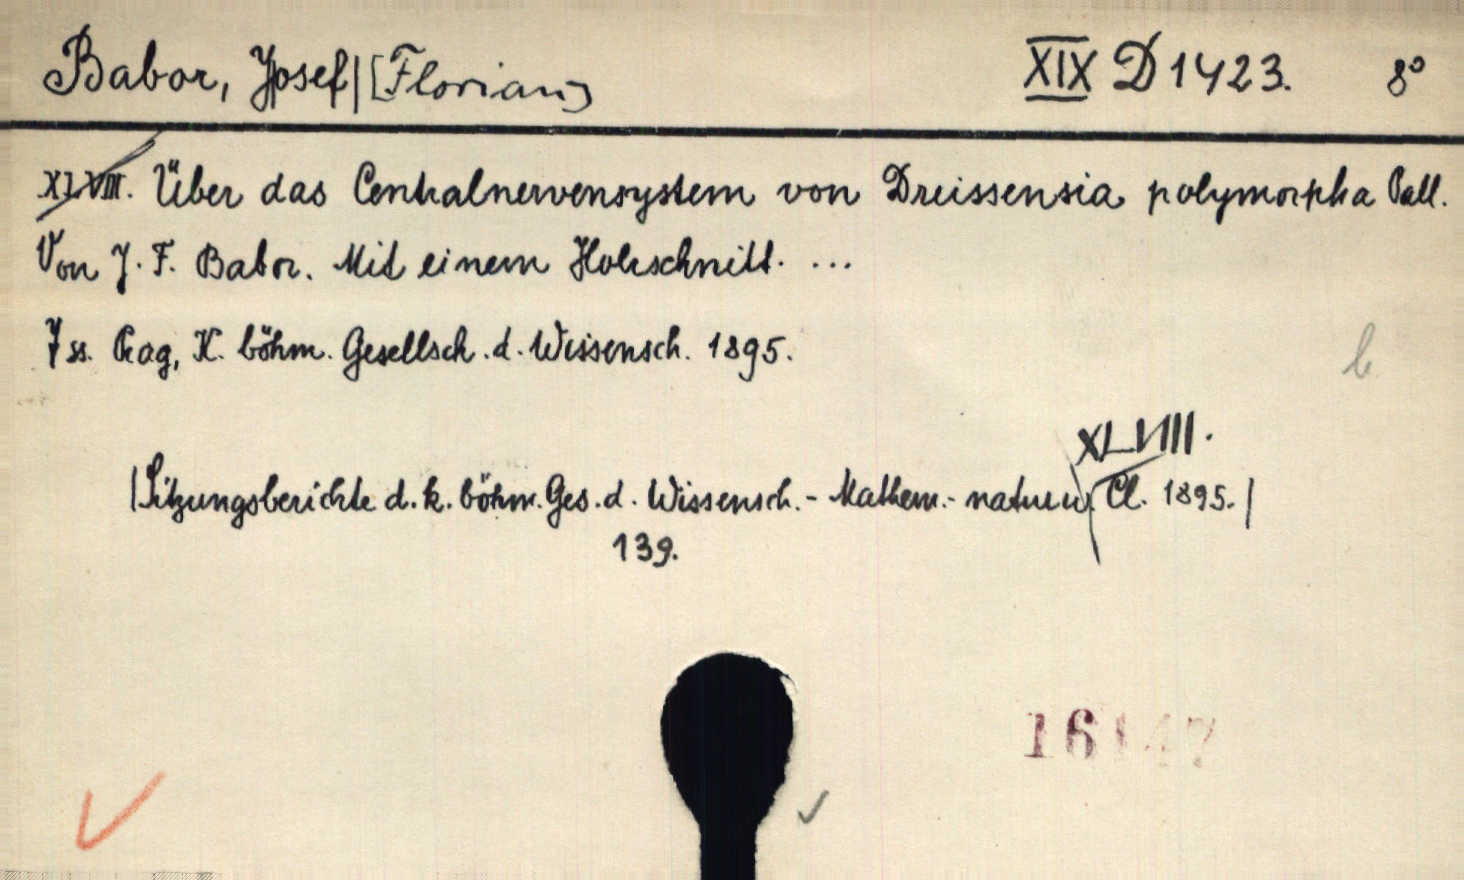 Babor, Josef | [Florian] XIX D 1423. 8°
XLVIII. Über das Centralnervensystem von Dreissensia polymorpha Pall.
Von J. F. Babor. Mit einem Holzschnitt. ...
7 ss. Prag, K. böhm. Gesellsch. d. Wissensch. 1895.
b
XLVIII.
|Sitzungsberichte d. k. böhm. Ges. d. Wissensch. - Mathem.- naturw. Cl. 1895.|
139.
16147